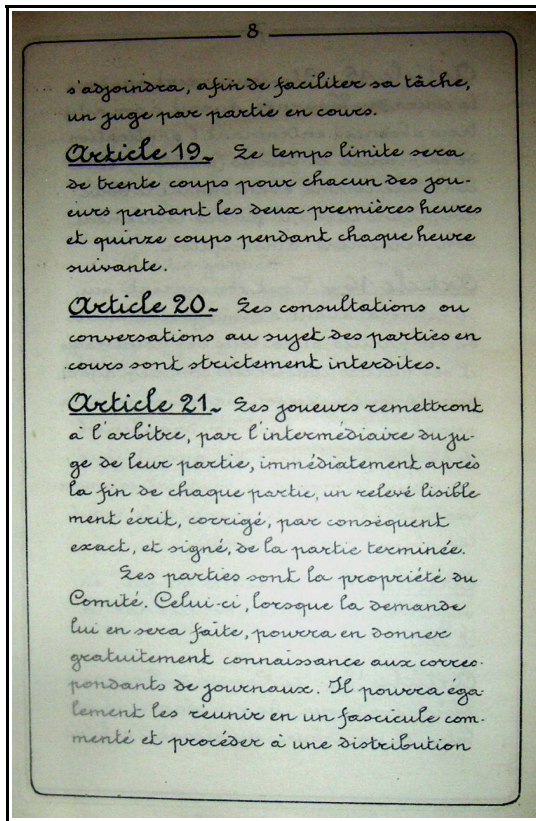 8
s'adjoindra, afin de faciliter sa tâche,
un juge par partie en cours.
Article 19_ Le temps limite sera
de trente coups pour chacun des jou-
eurs pendant les deux premières heures
et quinze coups pendant chaque heure
suivante.
Article 20_ Les consultations ou
conversations au sujet des parties en
cours sont strictement interdites.
Article 21_ Les joueurs remettront
à l'arbitre, par l'intermédiaire du ju-
ge de leur partie, immédiatement après
la fin de chaque partie, un relevé lisible-
ment écrit, corrigé, par conséquent
exact, et signé, de la partie terminée.
Les parties sont la propriété du
Comité. Celui-ci, lorsque la demande
lui en sera faite, pourra en donner
gratuitement connaissance aux corres-
pondants de journaux. Il pourra éga-
lement les réunir en un fascicule com-
menté et procéder à une distribution